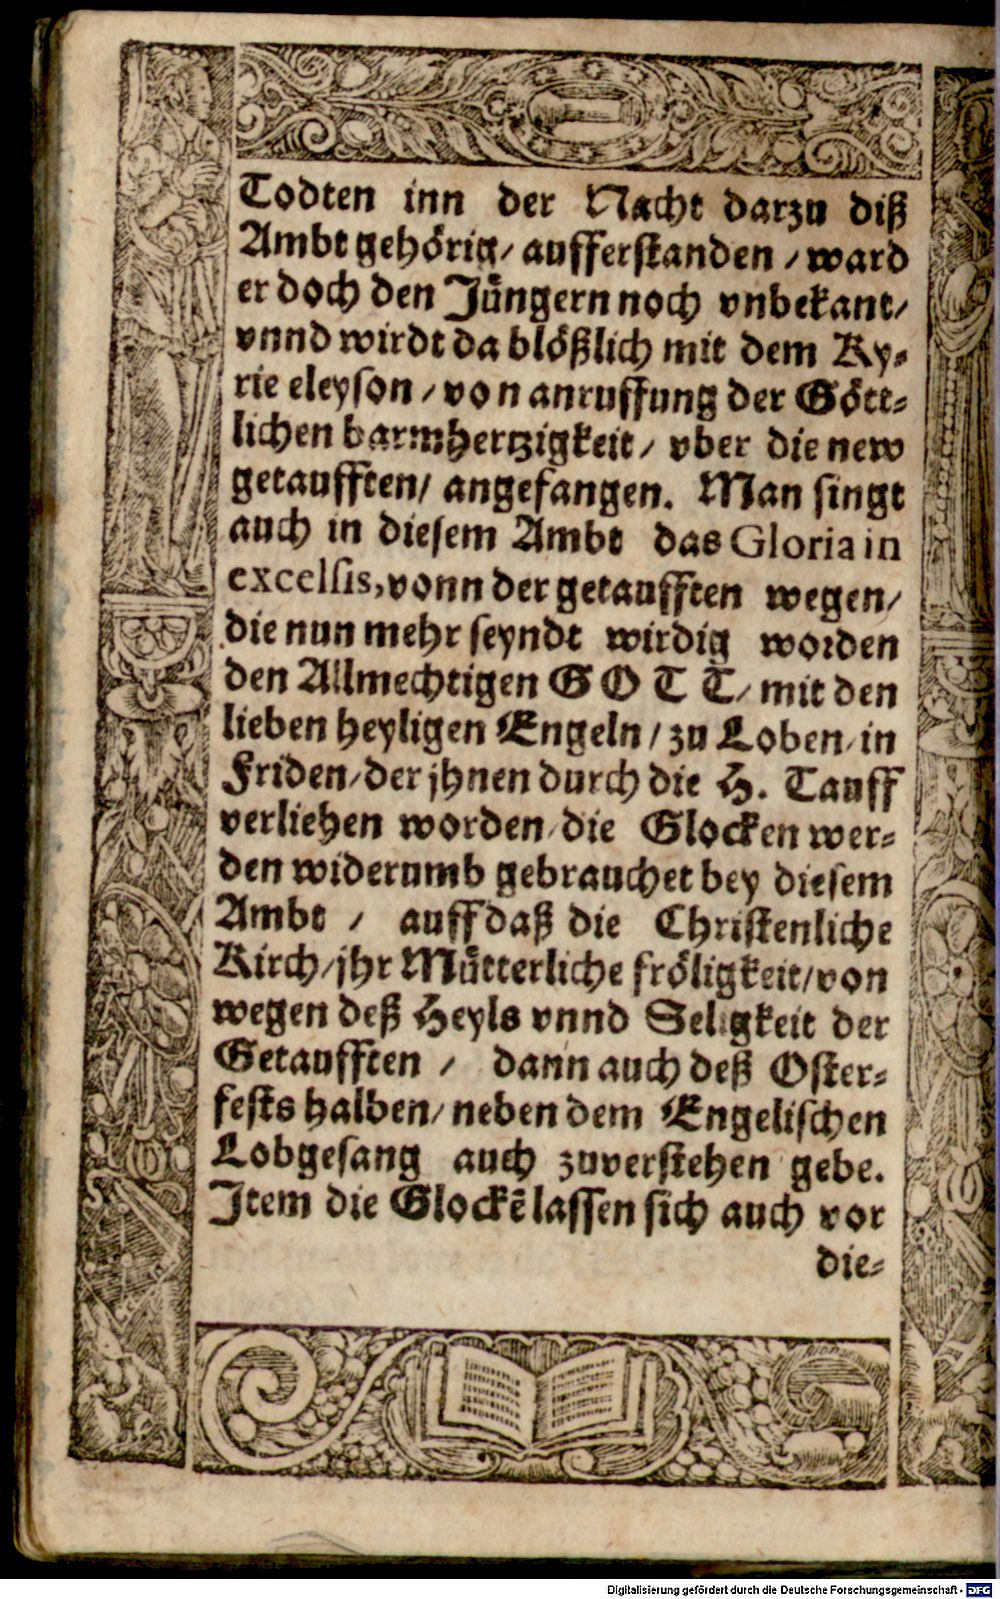 Todten inn der Nacht darzu diß
Ambt gehörig/ aufferstanden / ward
er doch den Jüngern noch vnbekant/
vnnd wirdt da blößlich mit dem Ky⸗
rie eleyson / von anruffung der Gött⸗
lichen barmhertzigkeit / vber die new
getaufften/ angefangen. Man singt
auch in diesem Ambt das Gloria in
excelsis, vonn der getaufften wegen/
die nun mehr seyndt wirdig worden
den Allmechtigen GOTT/ mit den
lieben heyligen Engeln / zu Loben/ in
Friden/ der jhnen durch die H. Tauff
verliehen worden/ die Glocken wer⸗
den widerumb gebrauchet bey diesem
Ambt / auff daß die Christenliche
Kirch/ jhr Mütterliche fröligkeit/ von
wegen deß Heyls vnnd Seligkeit der
Getaufften / dann auch deß Oster⸗
fests halben/ neben dem Engelischen
Lobgesang auch zuverstehen gebe.
Item die Glockẽ lassen sich auch vor
die⸗
Digitalisierung gefördert durch die Deutsche Forschungsgemeinschaft - DFG